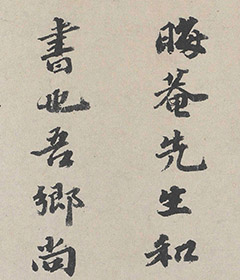 晦菴先生和
書也吾鄉尚